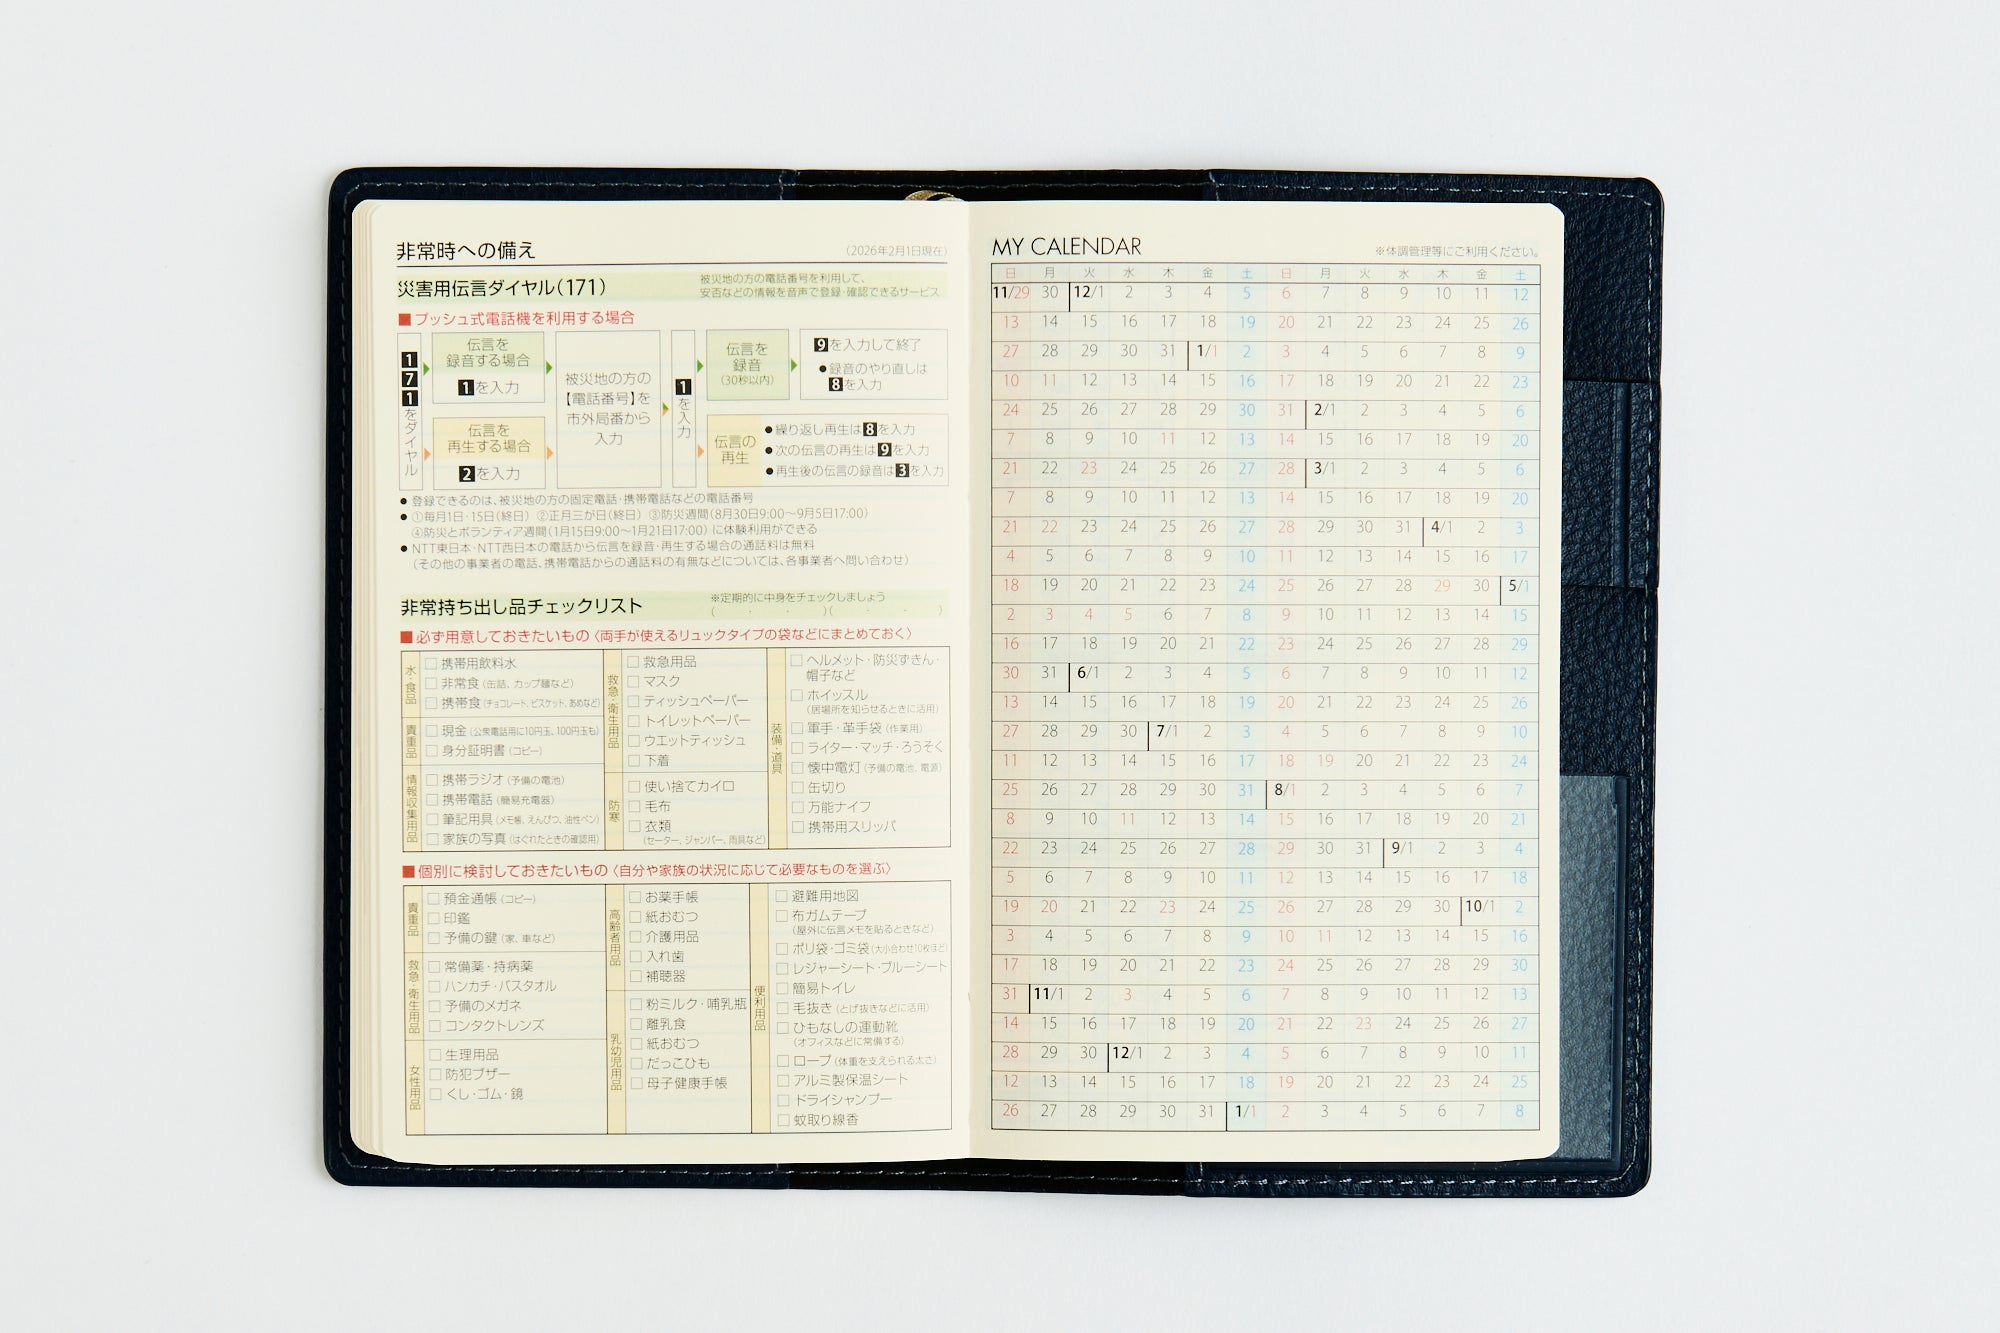 非常時への備え
(2026年2月1日現在)
災害用伝言ダイヤル(171)
被災地の方の電話番号を利用して、
安否などの情報を音声で登録・確認できるサービス
■プッシュ式電話機を利用する場合
171をダイヤル
伝言を
録音する場合
1を入力
伝言を
再生する場合
2を入力
被災地の方の
【電話番号】を
市外局番から
入力
1を入力
伝言を
録音
(30秒以内)
9を入力して終了
●録音のやり直しは
8を入力
伝言の
再生
●繰り返し再生は8を入力
●次の伝言の再生は9を入力
●再生後の伝言の録音は3を入力
●登録できるのは、被災地の方の固定電話・携帯電話などの電話番号
●①毎月1日・15日(終日) ②正月三が日(終日) ③防災週間(8月30日9:00〜9月5日17:00)
④防災とボランティア週間(1月15日9:00〜1月21日17:00) に体験利用ができる
●NTT東日本・NTT西日本の電話から伝言を録音・再生する場合の通話料は無料
(その他の事業者の電話、携帯電話からの通話料の有無などについては、各事業者へ問い合わせ)
非常持ち出し品チェックリスト
※定期的に中身をチェックしましょう
( ・ ・ )( ・ ・ )
■必ず用意しておきたいもの〈両手が使えるリュックタイプの袋などにまとめておく〉
水・食品
□携帯用飲料水
□非常食(缶詰、カップ麺など)
□携帯食(チョコレート、ビスケット、あめなど)
貴重品
□現金(公衆電話用に10円玉、100円玉も)
□身分証明書(コピー)
情報収集用品
□携帯ラジオ(予備の電池)
□携帯電話(簡易充電器)
□筆記用具(メモ帳、えんぴつ、油性ペン)
□家族の写真(はぐれたときの確認用)
救急・衛生用品
□救急用品
□マスク
□ティッシュペーパー
□トイレットペーパー
□ウエットティッシュ
□下着
防寒
□使い捨てカイロ
□毛布
□衣類
(セーター、ジャンパー、雨具など)
装備・道具
□ヘルメット・防災ずきん・
帽子など
□ホイッスル
(居場所を知らせるときに活用)
□軍手・革手袋(作業用)
□ライター・マッチ・ろうそく
□懐中電灯(予備の電池、電源)
□缶切り
□万能ナイフ
□携帯用スリッパ
■個別に検討しておきたいもの〈自分や家族の状況に応じて必要なものを選ぶ〉
貴重品
□預金通帳(コピー)
□印鑑
□予備の鍵(家、車など)
救急・衛生用品
□常備薬・持病薬
□ハンカチ・バスタオル
□予備のメガネ
□コンタクトレンズ
女性用品
□生理用品
□防犯ブザー
□くし・ゴム・鏡
高齢者用品
□お薬手帳
□紙おむつ
□介護用品
□入れ歯
□補聴器
乳幼児用品
□粉ミルク・哺乳瓶
□離乳食
□紙おむつ
□だっこひも
□母子健康手帳
便利用品
□避難用地図
□布ガムテープ
(屋外に伝言メモを貼るときなど)
□ポリ袋・ゴミ袋(大小合わせ10枚ほど)
□レジャーシート・ブルーシート
□簡易トイレ
□毛抜き(とげ抜きなどに活用)
□ひもなしの運動靴
(オフィスなどに常備する)
□ロープ(体重を支えられる太さ)
□アルミ製保温シート
□ドライシャンプー
□蚊取り線香
MY CALENDAR
※体調管理等にご利用ください。
日 月 火 水 木 金 土 日 月 火 水 木 金 土
11/29 30 12/1 2 3 4 5 6 7 8 9 10 11 12
13 14 15 16 17 18 19 20 21 22 23 24 25 26
27 28 29 30 31 1/1 2 3 4 5 6 7 8 9
10 11 12 13 14 15 16 17 18 19 20 21 22 23
24 25 26 27 28 29 30 31 2/1 2 3 4 5 6
7 8 9 10 11 12 13 14 15 16 17 18 19 20
21 22 23 24 25 26 27 28 3/1 2 3 4 5 6
7 8 9 10 11 12 13 14 15 16 17 18 19 20
21 22 23 24 25 26 27 28 29 30 31 4/1 2 3
4 5 6 7 8 9 10 11 12 13 14 15 16 17
18 19 20 21 22 23 24 25 26 27 28 29 30 5/1
2 3 4 5 6 7 8 9 10 11 12 13 14 15
16 17 18 19 20 21 22 23 24 25 26 27 28 29
30 31 6/1 2 3 4 5 6 7 8 9 10 11 12
13 14 15 16 17 18 19 20 21 22 23 24 25 26
27 28 29 30 7/1 2 3 4 5 6 7 8 9 10
11 12 13 14 15 16 17 18 19 20 21 22 23 24
25 26 27 28 29 30 31 8/1 2 3 4 5 6 7
8 9 10 11 12 13 14 15 16 17 18 19 20 21
22 23 24 25 26 27 28 29 30 31 9/1 2 3 4
5 6 7 8 9 10 11 12 13 14 15 16 17 18
19 20 21 22 23 24 25 26 27 28 29 30 10/1 2
3 4 5 6 7 8 9 10 11 12 13 14 15 16
17 18 19 20 21 22 23 24 25 26 27 28 29 30
31 11/1 2 3 4 5 6 7 8 9 10 11 12 13
14 15 16 17 18 19 20 21 22 23 24 25 26 27
28 29 30 12/1 2 3 4 5 6 7 8 9 10 11
12 13 14 15 16 17 18 19 20 21 22 23 24 25
26 27 28 29 30 31 1/1 2 3 4 5 6 7 8